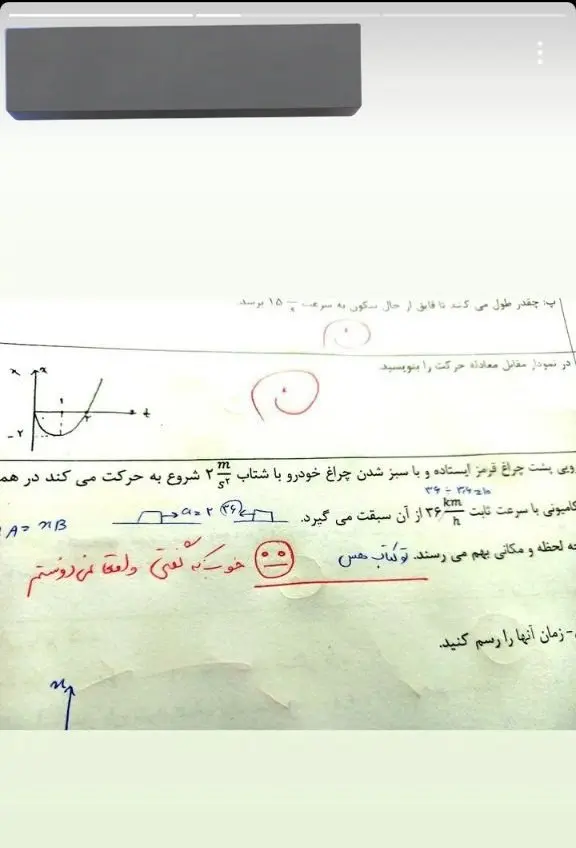 پ: چقدر طول می کشد تا قایق از حال سکون به سرعت ۱۵ m/s برسد.
در نمودار مقابل معادله حرکت را بنویسید
x
x
۱
۲
t
-۲
پشت چراغ قرمز ایستاده و با سبز شدن چراغ خودرو با شتاب ۲ m/s² شروع به حرکت می کند در
۳۶ ÷ ۳/۶ = ۱۰
با سرعت ثابت ۳۶ km/h از آن سبقت می گیرد.
a = ۲
۳۶
A = xB
لحظه و مکانی بهم می رسند.
تو کتاب هس
خوب که گفتی واقعا نمی دونستم
زمان آنها را رسم کنید.
x